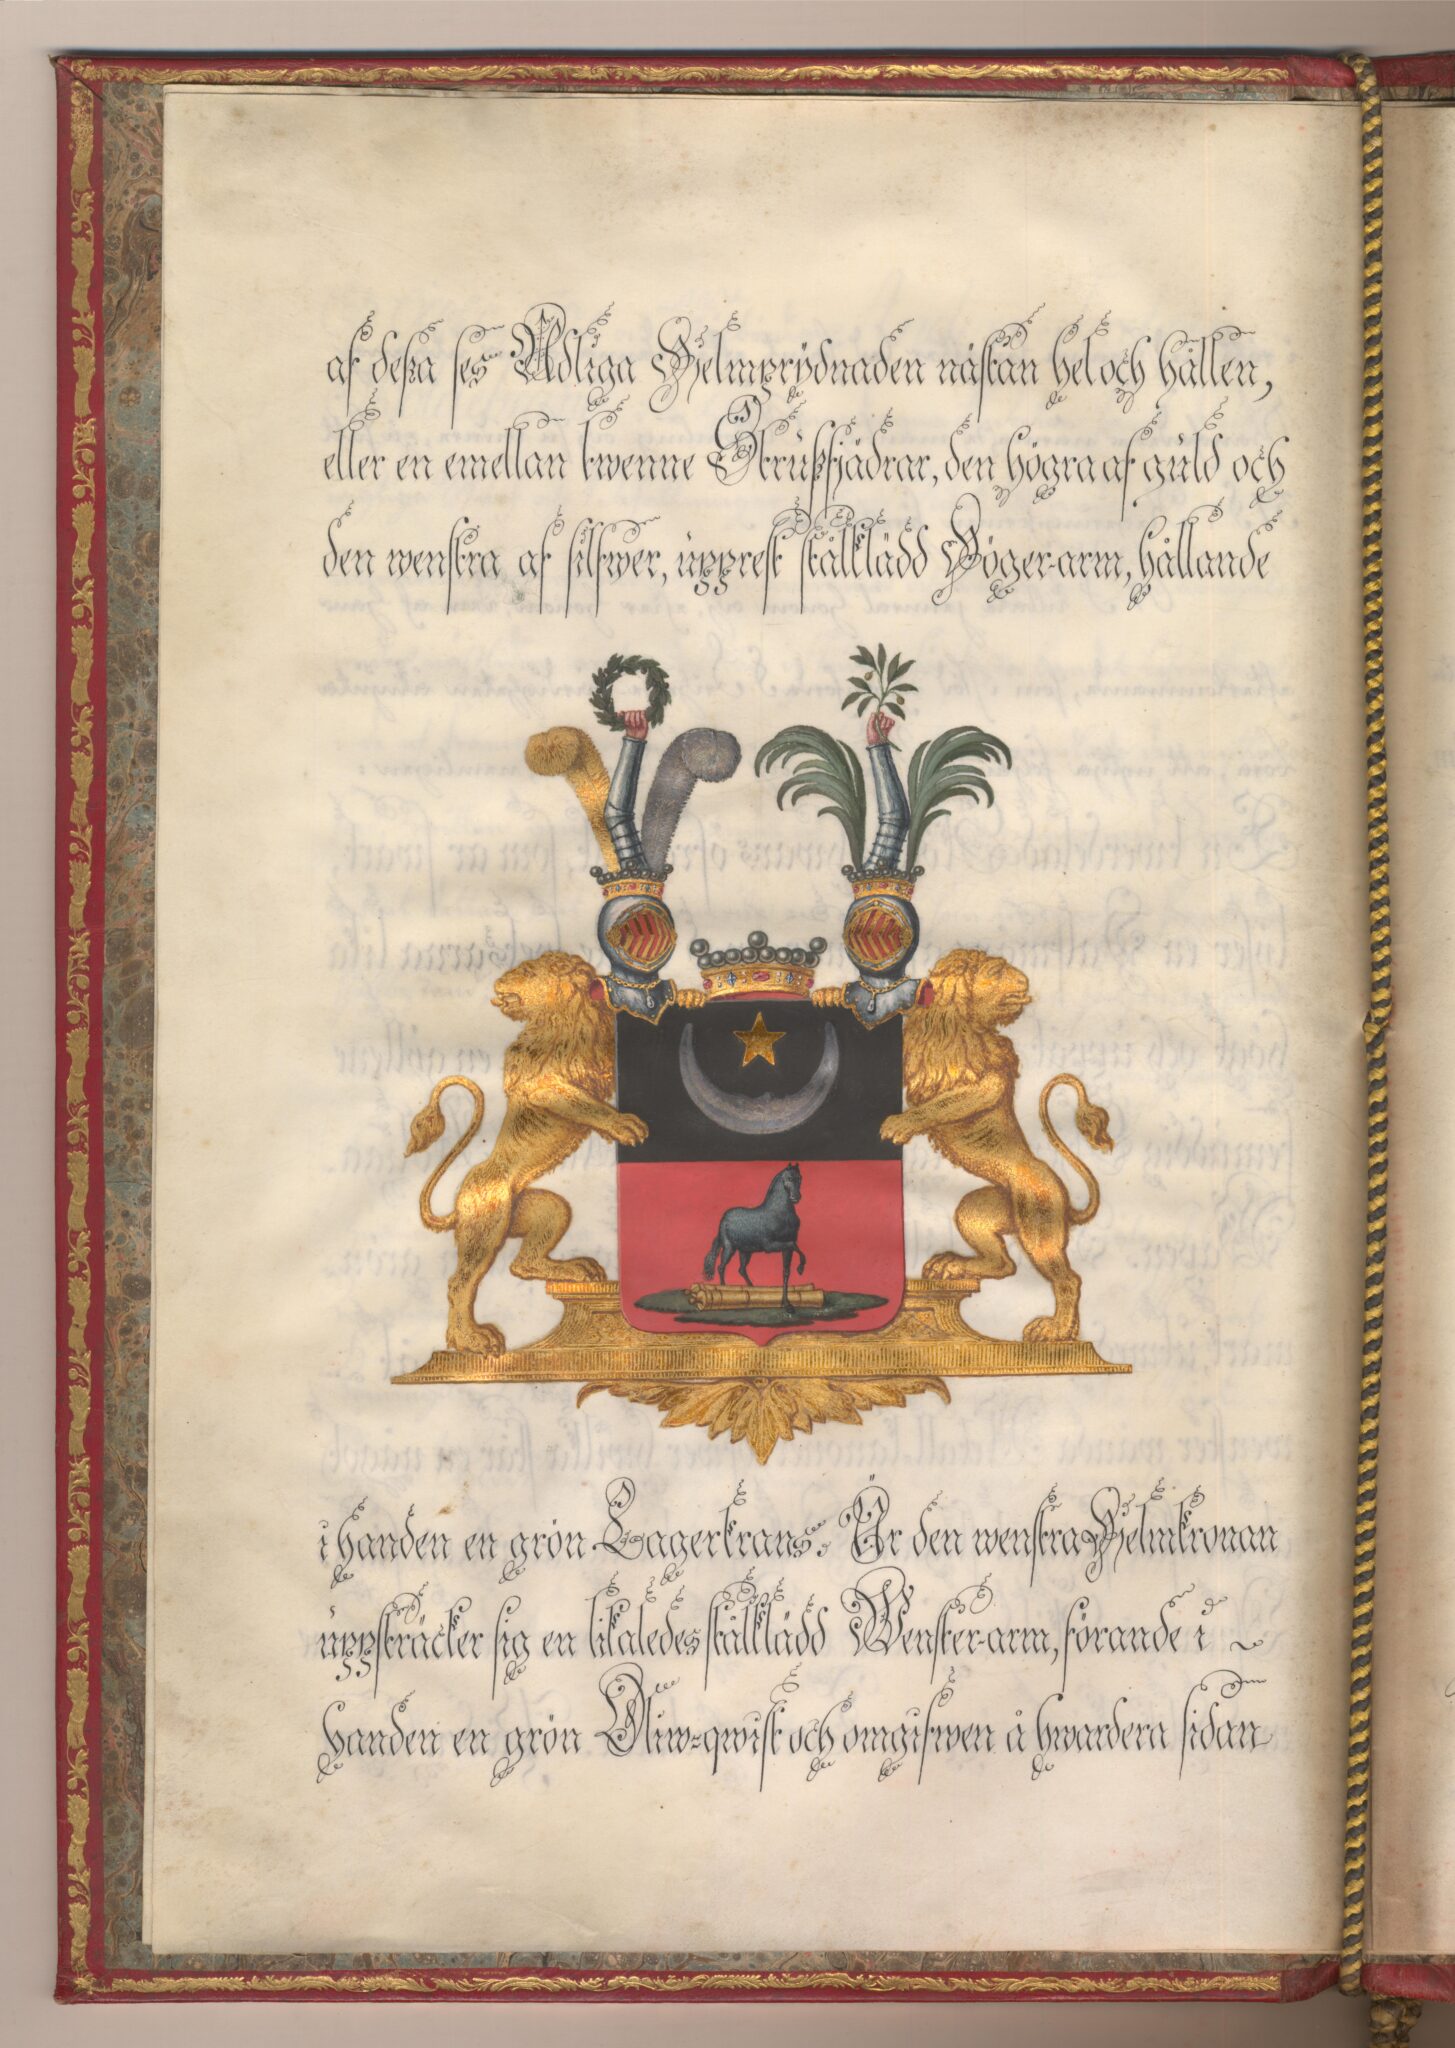 af deßa ses Adliga Hjelmprydnaden nästan hel och hållen,
eller en emellan twenne Strußfjädrar, den högra af guld och
den wenstra af silfwer, upprest stålklädd Höger-arm, hållande
i handen en grön Lagerkrans. Ur den wenstra Hjelmkronan
uppsträcker sig en likaledes stålklädd Wenster-arm, förande i
handen en grön Oliw-qwist och omgifwen å hwardera sidan